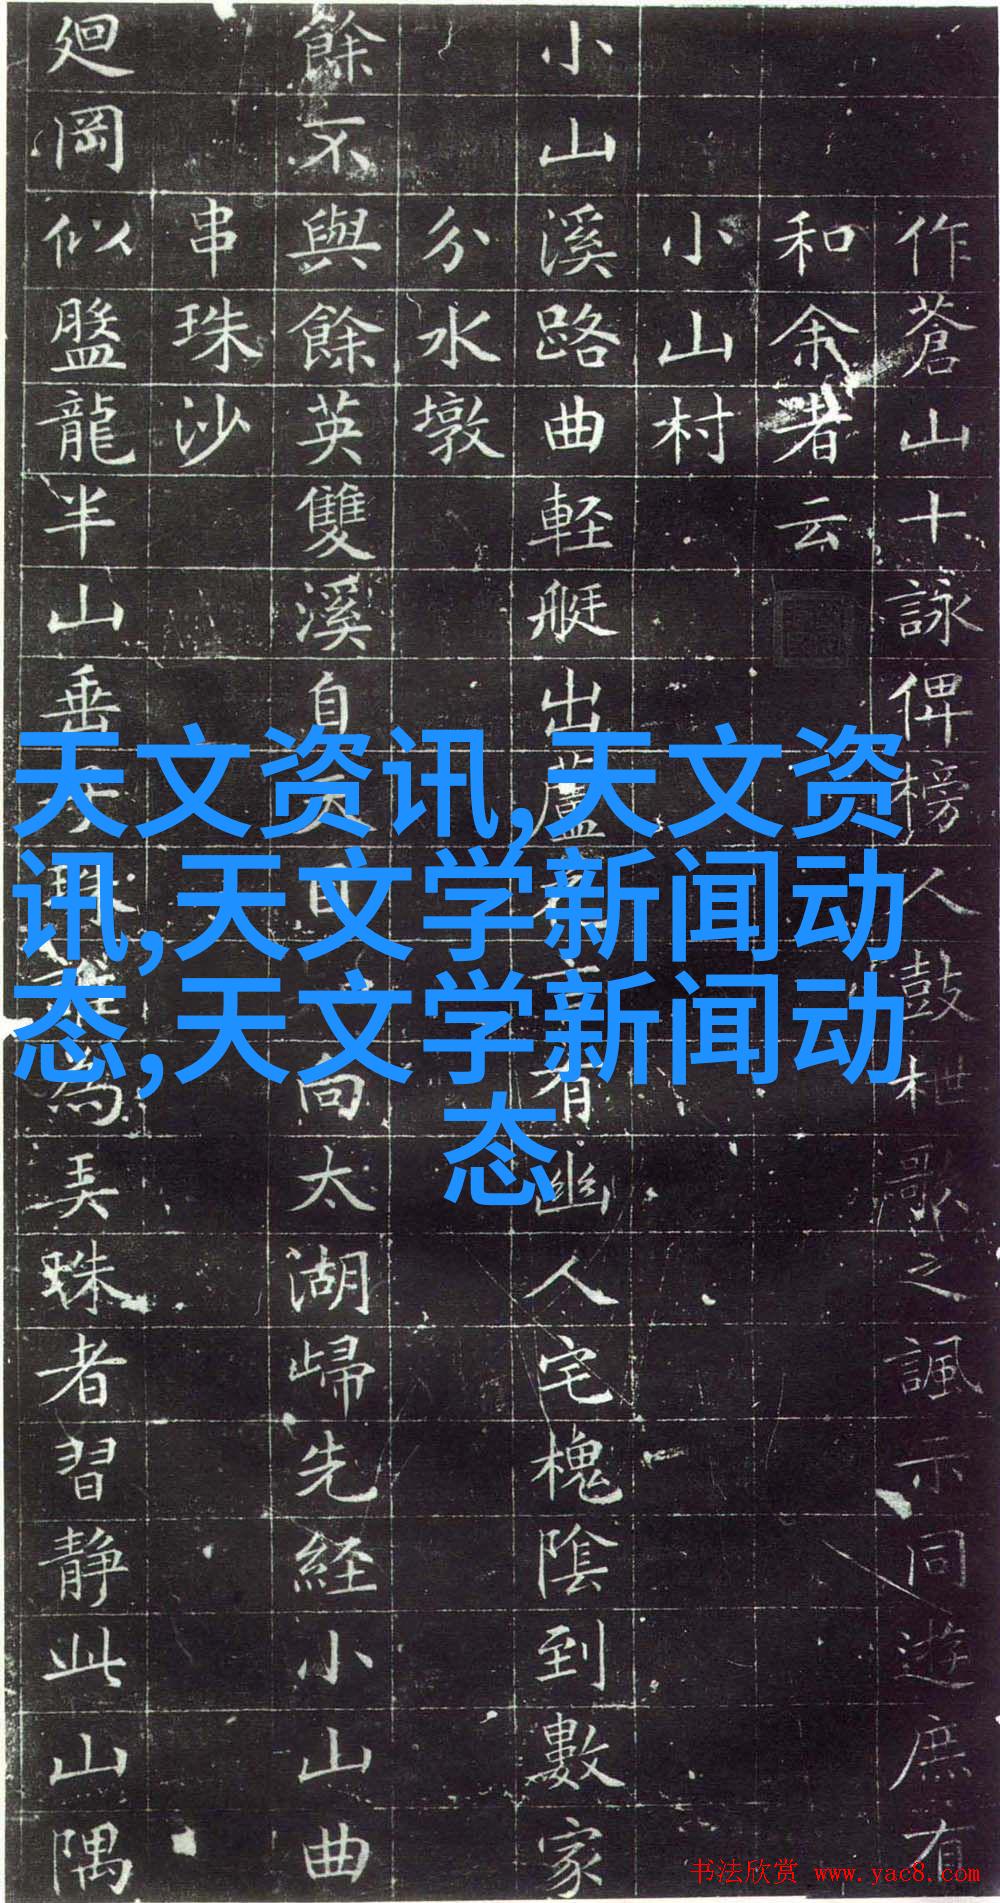 作蒼山十詠俾榜人鼓枻歌之諷示同遊庶有
和余者云
小山村
小山溪路曲軽艇出蘆有幽人宅槐陰到數家
分水墩
餘不與餘英雙溪自向太湖歸先経小山曲
串珠沙
廻岡似盤龍半山垂珠為弄珠者習静此山隅
天文资讯,天文资
讯,天文学新闻动
态,天文学新闻动
态
书法欣赏 www.yac8.com